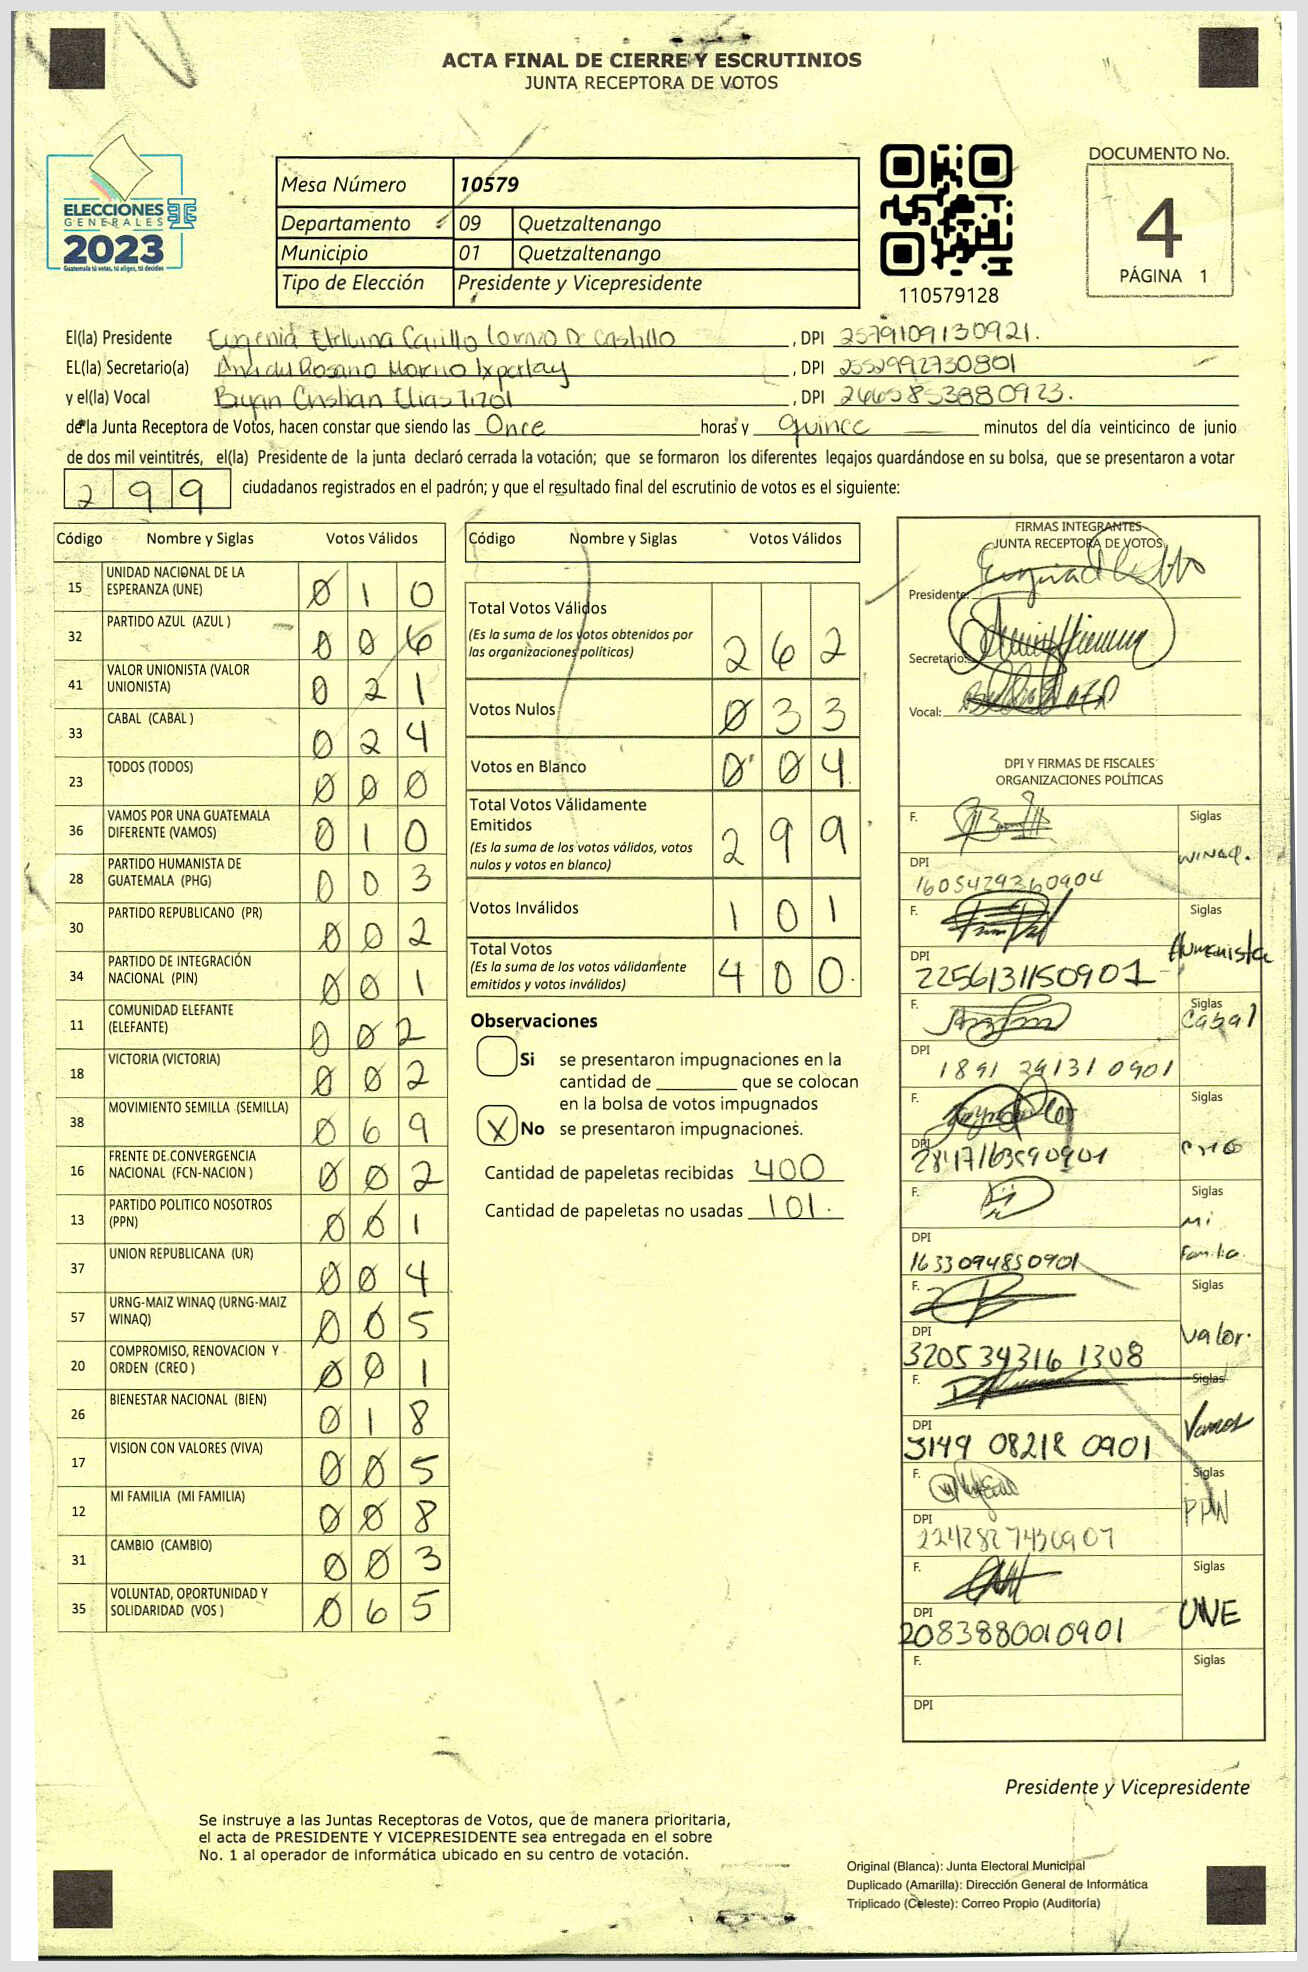 ACTA FINAL DE CIERRE Y ESCRUTINIOS
JUNTA RECEPTORA DE VOTOS
ELECCIONES
GENERALES
2023
Guatemala tú votas, tú eliges, tú decides
Mesa Número 10579
Departamento 09 Quetzaltenango
Municipio 01 Quetzaltenango
Tipo de Elección Presidente y Vicepresidente
110579128
DOCUMENTO No.
4
PÁGINA 1
El(la) Presidente Eugenia Carillo De Castillo, DPI 2579109130921.
EL(la) Secretario(a) Rosario Moreno, DPI 2552992730801
y el(la) Vocal Bryan Cristian Elias Tizol, DPI 2665853880923.
de la Junta Receptora de Votos, hacen constar que siendo las Once horas y quince minutos del día veinticinco de junio
de dos mil veintitrés, el(la) Presidente de la junta declaró cerrada la votación; que se formaron los diferentes legajos guardándose en su bolsa, que se presentaron a votar
299 ciudadanos registrados en el padrón; y que el resultado final del escrutinio de votos es el siguiente:
Código Nombre y Siglas Votos Válidos
15 UNIDAD NACIONAL DE LA ESPERANZA (UNE) 010
32 PARTIDO AZUL (AZUL ) 006
41 VALOR UNIONISTA (VALOR UNIONISTA) 021
33 CABAL (CABAL ) 024
23 TODOS (TODOS) 000
36 VAMOS POR UNA GUATEMALA DIFERENTE (VAMOS) 010
28 PARTIDO HUMANISTA DE GUATEMALA (PHG) 003
30 PARTIDO REPUBLICANO (PR) 002
34 PARTIDO DE INTEGRACIÓN NACIONAL (PIN) 001
11 COMUNIDAD ELEFANTE (ELEFANTE) 002
18 VICTORIA (VICTORIA) 002
38 MOVIMIENTO SEMILLA (SEMILLA) 069
16 FRENTE DE CONVERGENCIA NACIONAL (FCN-NACION ) 002
13 PARTIDO POLITICO NOSOTROS (PPN) 001
37 UNION REPUBLICANA (UR) 004
57 URNG-MAIZ WINAQ (URNG-MAIZ WINAQ) 005
20 COMPROMISO, RENOVACION Y ORDEN (CREO ) 001
26 BIENESTAR NACIONAL (BIEN) 018
17 VISION CON VALORES (VIVA) 005
12 MI FAMILIA (MI FAMILIA) 008
31 CAMBIO (CAMBIO) 003
35 VOLUNTAD, OPORTUNIDAD Y SOLIDARIDAD (VOS ) 065
Código Nombre y Siglas Votos Válidos
Total Votos Válidos 262
(Es la suma de los votos obtenidos por las organizaciones políticas)
Votos Nulos 033
Votos en Blanco 004
Total Votos Válidamente Emitidos 299
(Es la suma de los votos válidos, votos nulos y votos en blanco)
Votos Inválidos 101
Total Votos 400
(Es la suma de los votos válidamente emitidos y votos inválidos)
Observaciones
Si se presentaron impugnaciones en la
cantidad de ________ que se colocan
en la bolsa de votos impugnados
X No se presentaron impugnaciones.
Cantidad de papeletas recibidas 400
Cantidad de papeletas no usadas 101.
FIRMAS INTEGRANTES
JUNTA RECEPTORA DE VOTOS
Presidente:
Secretario:
Vocal:
DPI Y FIRMAS DE FISCALES
ORGANIZACIONES POLÍTICAS
F. Siglas WINAQ.
DPI 1605429360904
F. Siglas Humanista
DPI 2256131150901
F. Siglas Cabal
DPI 1891 29131 0901
F. Siglas CREO
DPI 2847163590901
F. Siglas Mi Familia.
DPI 1633094850901
F. Siglas Valor.
DPI 320534316 1308
F. Siglas Vamos
DPI 3149 08218 0901
F. Siglas PPN
DPI
F. Siglas UNE
DPI 2083880010901
F. Siglas
DPI
Presidente y Vicepresidente
Se instruye a las Juntas Receptoras de Votos, que de manera prioritaria,
el acta de PRESIDENTE Y VICEPRESIDENTE sea entregada en el sobre
No. 1 al operador de informática ubicado en su centro de votación.
Original (Blanca): Junta Electoral Municipal
Duplicado (Amarilla): Dirección General de Informática
Triplicado (Celeste): Correo Propio (Auditoría)